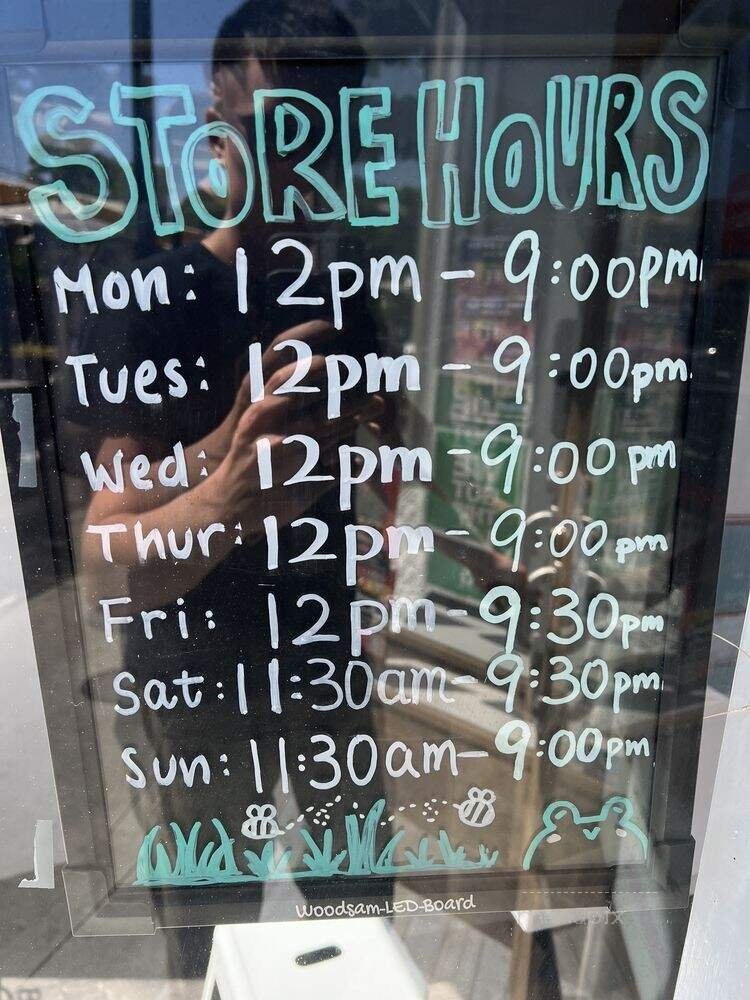 STORE HOURS
Mon: 12pm - 9:00pm
Tues: 12pm - 9:00pm
Wed: 12pm - 9:00pm
Thur: 12pm - 9:00pm
Fri: 12pm - 9:30pm
Sat: 11:30am - 9:30pm
Sun: 11:30am - 9:00pm
Woodsam-LED-Board